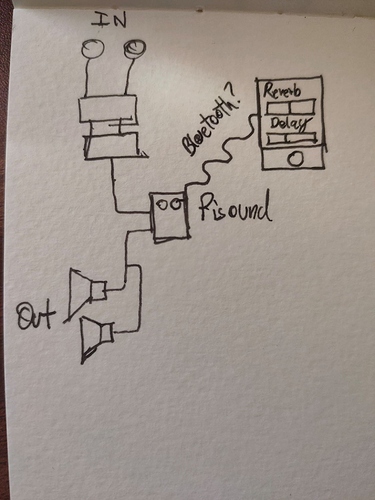 IN
Bluetooth?
Reverb
Delay
Pisound
Out